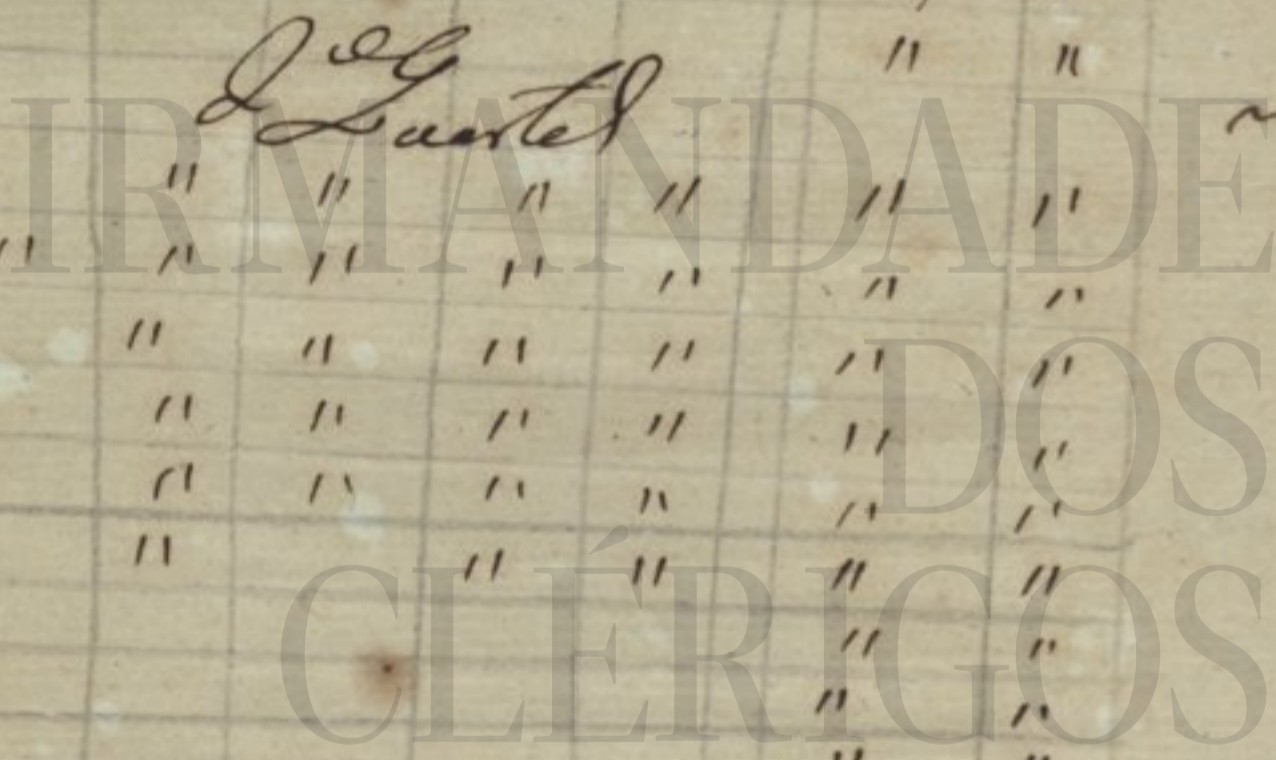 " "
Quartel
" " " " " "
" " " " " " "
" " " " " "
" " " " " "
" " " " " "
" " " " "
" "
" "
" "
IRMANDADE
DOS
CLÉRIGOS